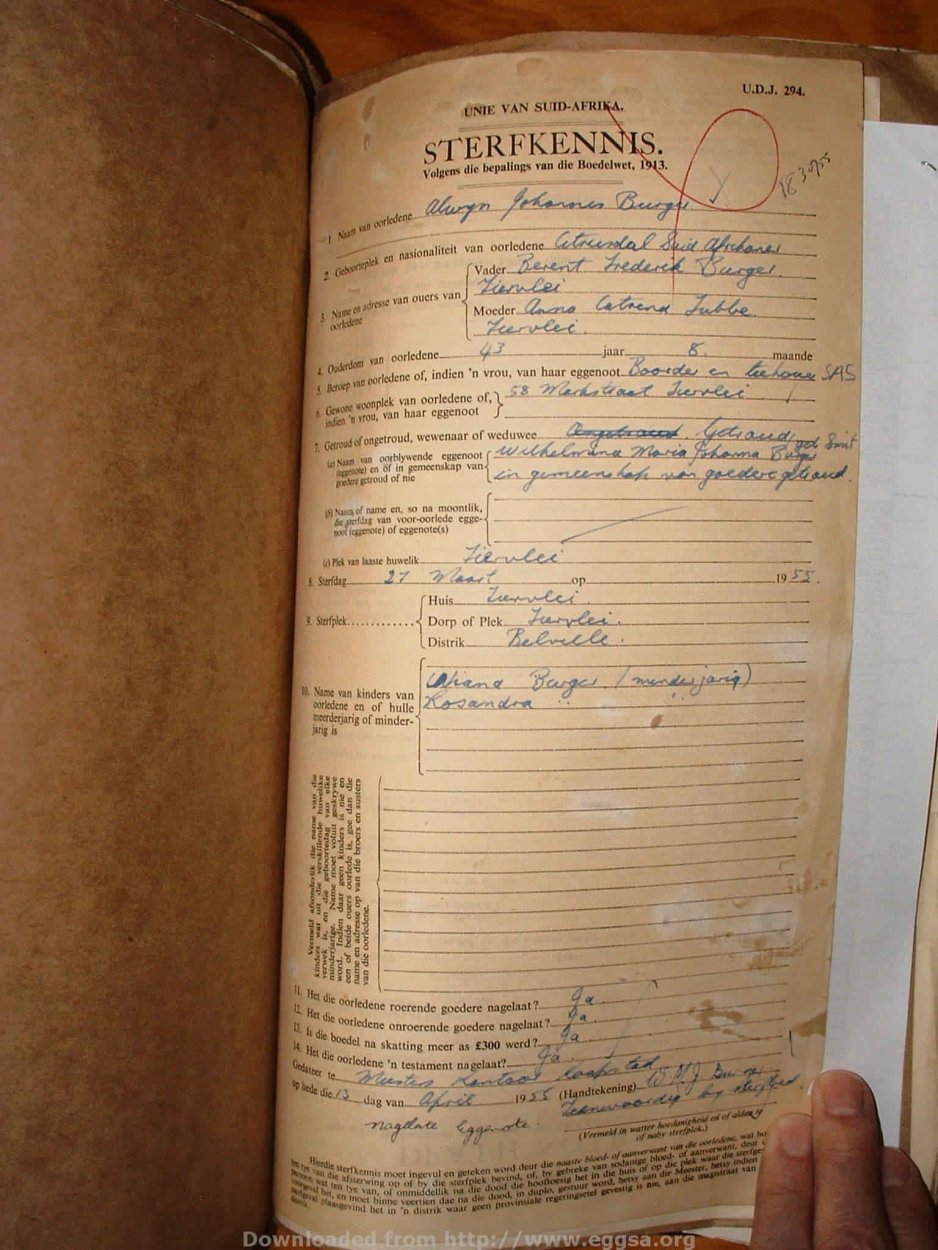 U.D.J. 294.
UNIE VAN SUID-AFRIKA.
STERFKENNIS.
Volgens die bepalings van die Boedelwet, 1913.
1. Naam van oorledene Alwyn Johannes Burger
2. Geboorteplek en nasionaliteit van oorledene Citrusdal Suid Afrikaner
3. Name en adresse van ouers van oorledene
Vader Berent Frederik Burger
Tiervlei
Moeder Anna Catrena Lubbe
Tiervlei
4. Ouderdom van oorledene 43 jaar 8. maande
5. Beroep van oorledene of, indien 'n vrou, van haar eggenoot Boorder en SAS
6. Gewone woonplek van oorledene of, indien 'n vrou, van haar eggenoot
58 Markstraat Tiervlei
7. Getroud of ongetroud, wewenaar of weduwee Ongetroud Getroud
(a) Naam van oorblywende eggenoot (eggenote) en of in gemeenskap van goedere getroud of nie
Wilhelmina Maria Johanna Burger geb Smit
in gemeenskap van goedere getroud.
(b) Naam of name en, so na moontlik, die sterfdag van voor-oorlede eggenoot (eggenote) of eggenote(s)
(c) Plek van laaste huwelik Tiervlei
8. Sterfdag 27 Maart op 1955.
9. Sterfplek
Huis Tiervlei
Dorp of Plek Tiervlei.
Distrik Belville.
10. Name van kinders van oorledene en of hulle meerderjarig of minderjarig is
Burger (minderjarig)
Rosandra " "
Vermeld afsonderlik die name van die kinders wat uit die verskillende huwelike verwek is, en die geboortedag van elke minderjarige. Name moet voluit geskrywe word. Indien daar geen kinders is nie en een of beide ouers oorlede is, gee dan die name en adresse op van die broers en susters van die oorledene.
11. Het die oorledene roerende goedere nagelaat? Ja.
12. Het die oorledene onroerende goedere nagelaat? Ja.
13. Is die boedel na skatting meer as £300 werd? Ja
14. Het die oorledene 'n testament nagelaat? Ja
Gedateer te Meesters Kantoor Kaapstad
op hede die 13 dag van April 1955 (Handtekening) W M J Burger
Teenwoordig by sterfbed.
nagelate Eggenote.
(Vermeld in watter hoedanigheid en of aldan of naby sterfplek.)
Hierdie sterfkennis moet ingevul en geteken word deur die naaste bloed- of aanverwant van die oorledene, wat
ten tye van die afsterwing op of by die sterfplek bevind, of, by gebreke van sodanige bloed- of aanverwant, deur
persoon wat ten tye van, of onmiddellik na die dood die hooftoesig het in die huis of op die plek waar die
het, en moet binne veertien dae na die dood, in duplo, gestuur word, hetsy aan die Meester, hetsy indien
sterfgeval plaasgevind het in 'n distrik waar geen provinsiale regeringsetel gevestig is nie, aan die magistraat van
Downloaded from http://www.eggsa.org